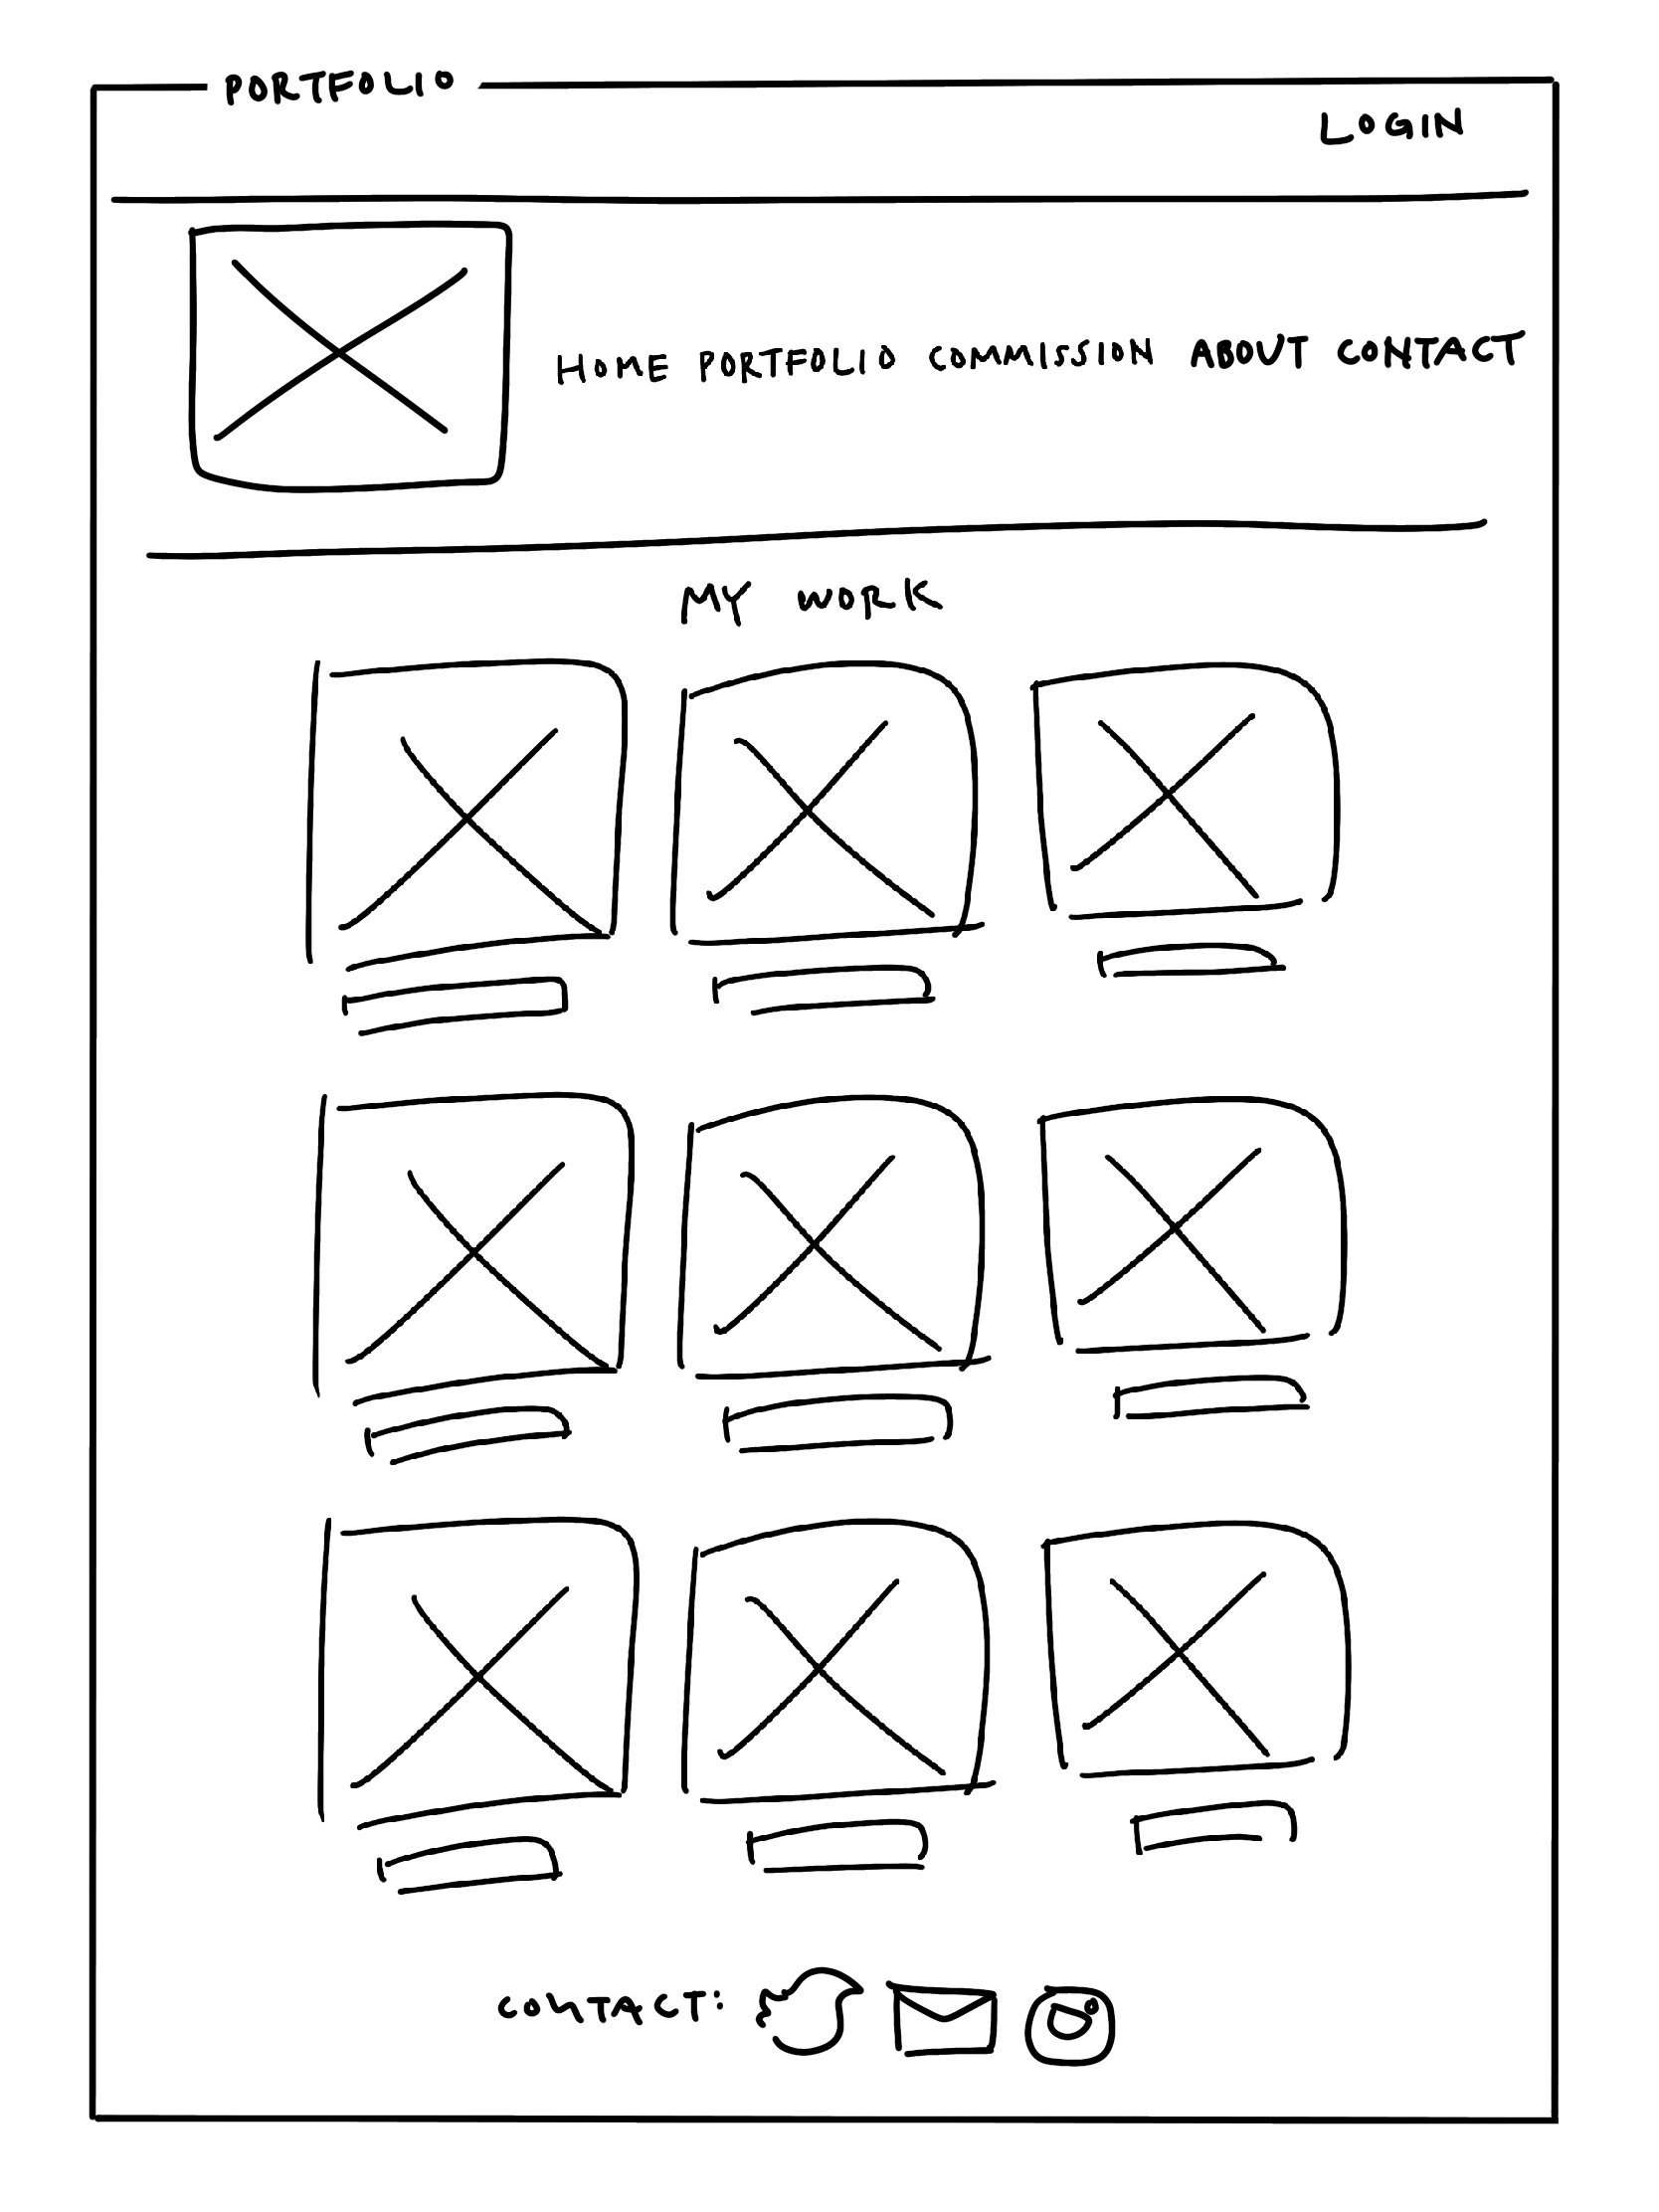 PORTFOLIO
LOGIN
HOME PORTFOLIO COMMISSION ABOUT CONTACT
MY WORK
CONTACT: